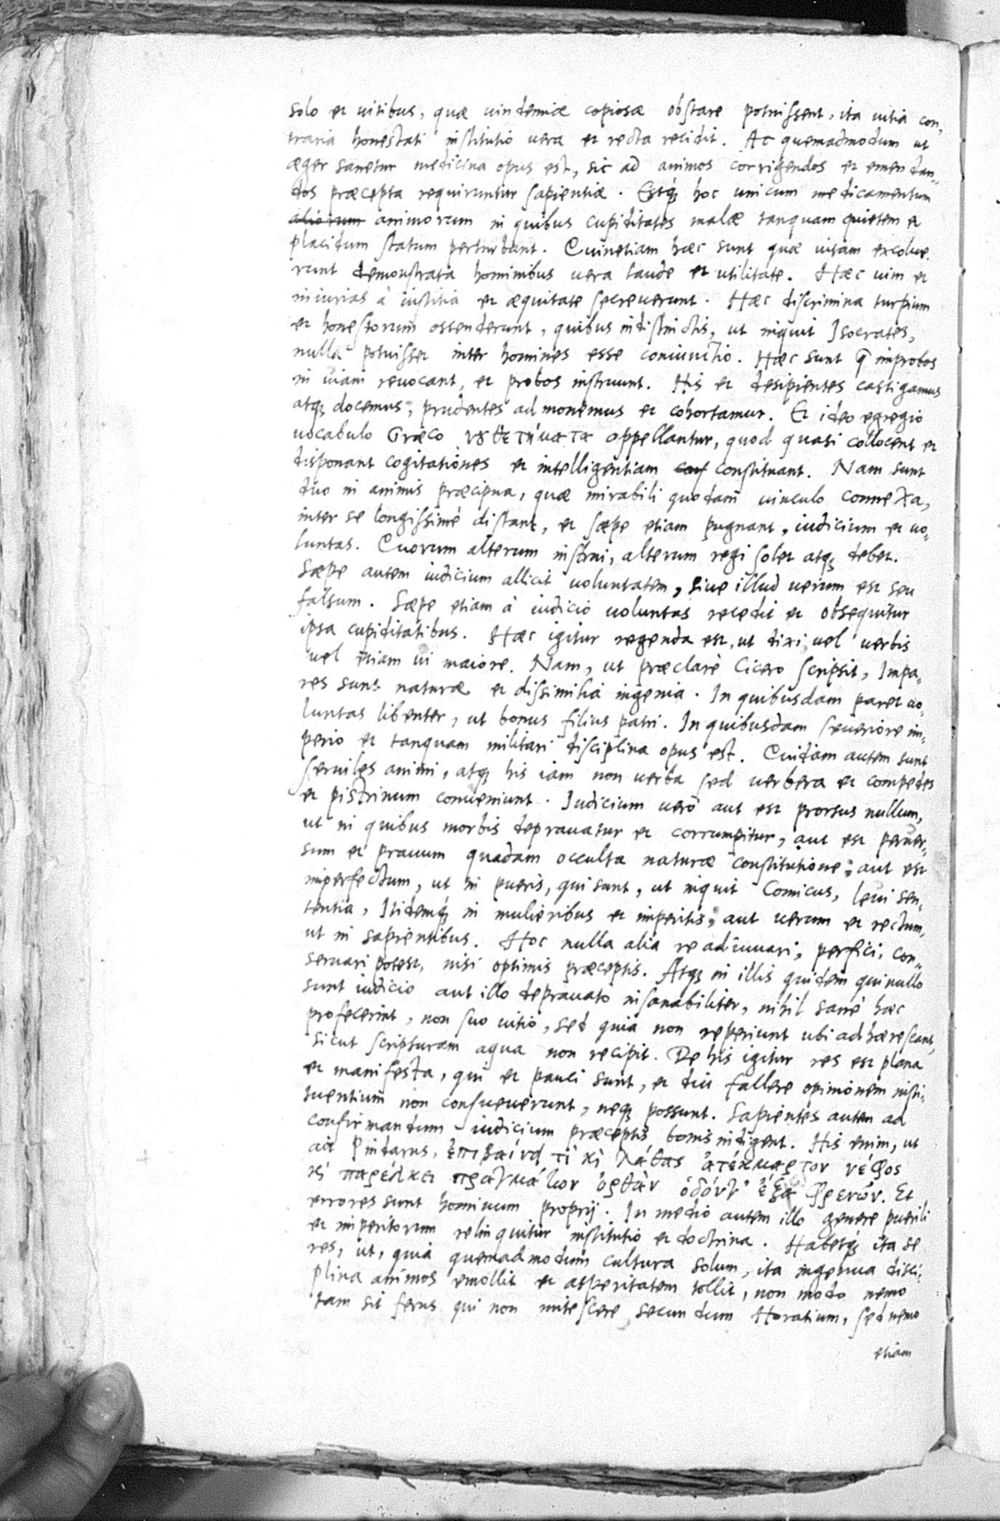 solo et uitibus, quæ uindemiæ copiosæ obstare potuissent, ita uitia con,
traria honestati institutio uera et recta recidit. Ac quemadmodum ut
æger sanetur medicina opus est, sic ad animos corrigendos et emendan,
dos præcepta requiruntur sapientiæ. Estq; hoc unicum medicamentum
aliorum animorum in quibus cupiditates malæ tanquam quietem et
placidum statum perturbant. Quinetiam hæc sunt quæ uitam excolue,
runt demonstrata hominibus uera laude et utilitate. Hæc uim et
iniurias à iustitia et æquitate secreuerunt. Hæc discrimina turpium
et honestorum ostenderunt, quibus indistinctis, ut inquit Isocrates,
nulla potuisset inter homines esse coniunctio. Hæc sunt q improbos
in uiam reuocant, et probos instruunt. His et desipientes castigamus
atq; docemus, prudentes admonemus et cohortamur. Et ideo egregio
uocabulo Græco νȣθετήματα appellantur, quod quasi collocent et
disponant cogitationes et intelligentiam conf constituant. Nam sunt
duo in animis præcipua, quæ mirabili quodam uinculo connexa,
inter se longissimè distant, et sæpe etiam pugnant, iudicium et uo,
luntas. Quorum alterum instrui, alterum regi solet atq; debet.
Sæpe autem iudicium allicit uoluntatem, siue illud uerum est seu
falsum. Sæpe etiam à iudicio uoluntas recedit et obsequitur
ipsa cupiditatibus. Hæc igitur regenda est, ut dixi, uel uerbis
uel etiam ui maiore. Nam, ut præclarè Cicero scripsit, Impa,
res sunt naturæ et dissimilia ingenia. In quibusdam paret uo,
luntas libenter, ut bonus filius patri. In quibusdam seueriore im,
perio et tanquam militari disciplina opus est. Quidam autem sunt
seruiles animi, atq; his iam non uerba sed uerbera et compedes
et pistrinum conueniunt. Iudicium uerò aut est prorsus nullum,
ut in quibus morbis deprauatur et corrumpitur, aut est peruer,
sum et prauum quadam occulta naturæ constitutione; aut est
imperfectum, ut in pueris, qui sunt, ut inquit Comicus, leui sen,
tentia, Itidemq; in mulieribus et imperitis; aut uerum et rectum,
ut in sapientibus. Hoc nulla alia re adiuuari, perfici, con,
seruari potest, nisi optimis præceptis. Atq; in illis quidem qui nullo
sunt iudicio aut illo deprauato insanabiliter, nihil sanè hæc
profecerint, non suo uitio, sed quia non reperiunt ubi adhærescant,
sicut scripturam aqua non recipit. De his igitur res est plana
et manifesta, qui et pauci sunt, et diu fallere opinionem insti,
tuentium non consueuerunt, neq; possunt. Sapientes autem ad
confirmandum iudicium præceptis bonis indigent. His enim, ut
ait Pindarus, ἐπιβαίνει τὶ κὶ λάθας ἀτέκμαρτον νέφος
κὶ παρέλκει πραγμάτων ὀρθὰν ὁδὸν ἔξω φρενῶν. Et
errores sunt hominum proprij. In medio autem illo genere puerili
et imperitorum relinquitur institutio et doctrina. Habetq; ita se
res, ut, quia quemadmodum cultura solum, ita ingenua disci,
plina animos emollit et asperitatem tollit, non modo nemo
tam sit ferus qui non mitescere, secundum Horatium, sed nemo
etiam